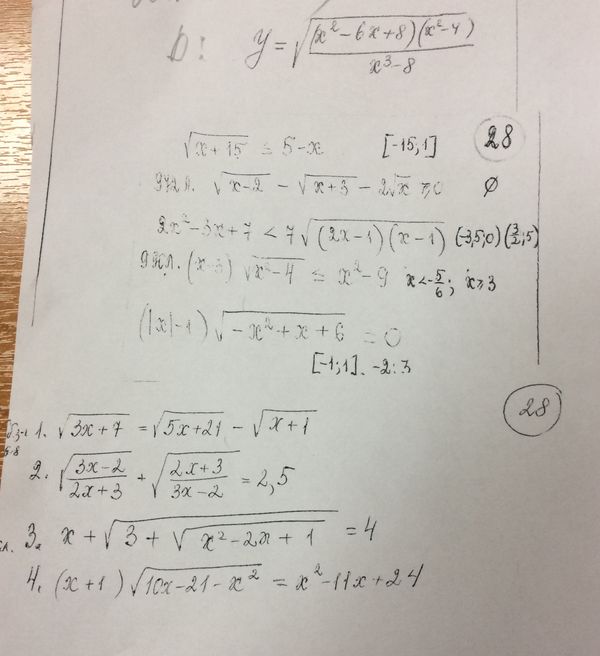 D: y = √((x² - 6x + 8)(x² - 4) / (x³ - 8))
√(x+15) ≤ 5 - x [-15; 1] 28
√(x-2) - √(x+3) - 2√x ≥ 0 ∅
2x² - 3x + 7 < 7√((2x-1)(x-1)) (-3,5; 0) (3/2; 5)
(x-3) √(x²-4) ≤ x² - 9 x < -5/6; x ≥ 3
(|x| - 1) √(-x² + x + 6) = 0
[-1; 1]. -2; 3
28
1. √(3x+7) = √(5x+21) - √(x+1)
2. √((3x-2)/(2x+3)) + √((2x+3)/(3x-2)) = 2,5
3. x + √(3 + √(x² - 2x + 1)) = 4
4. (x+1) √(10x - 21 - x²) = x² - 11x + 24